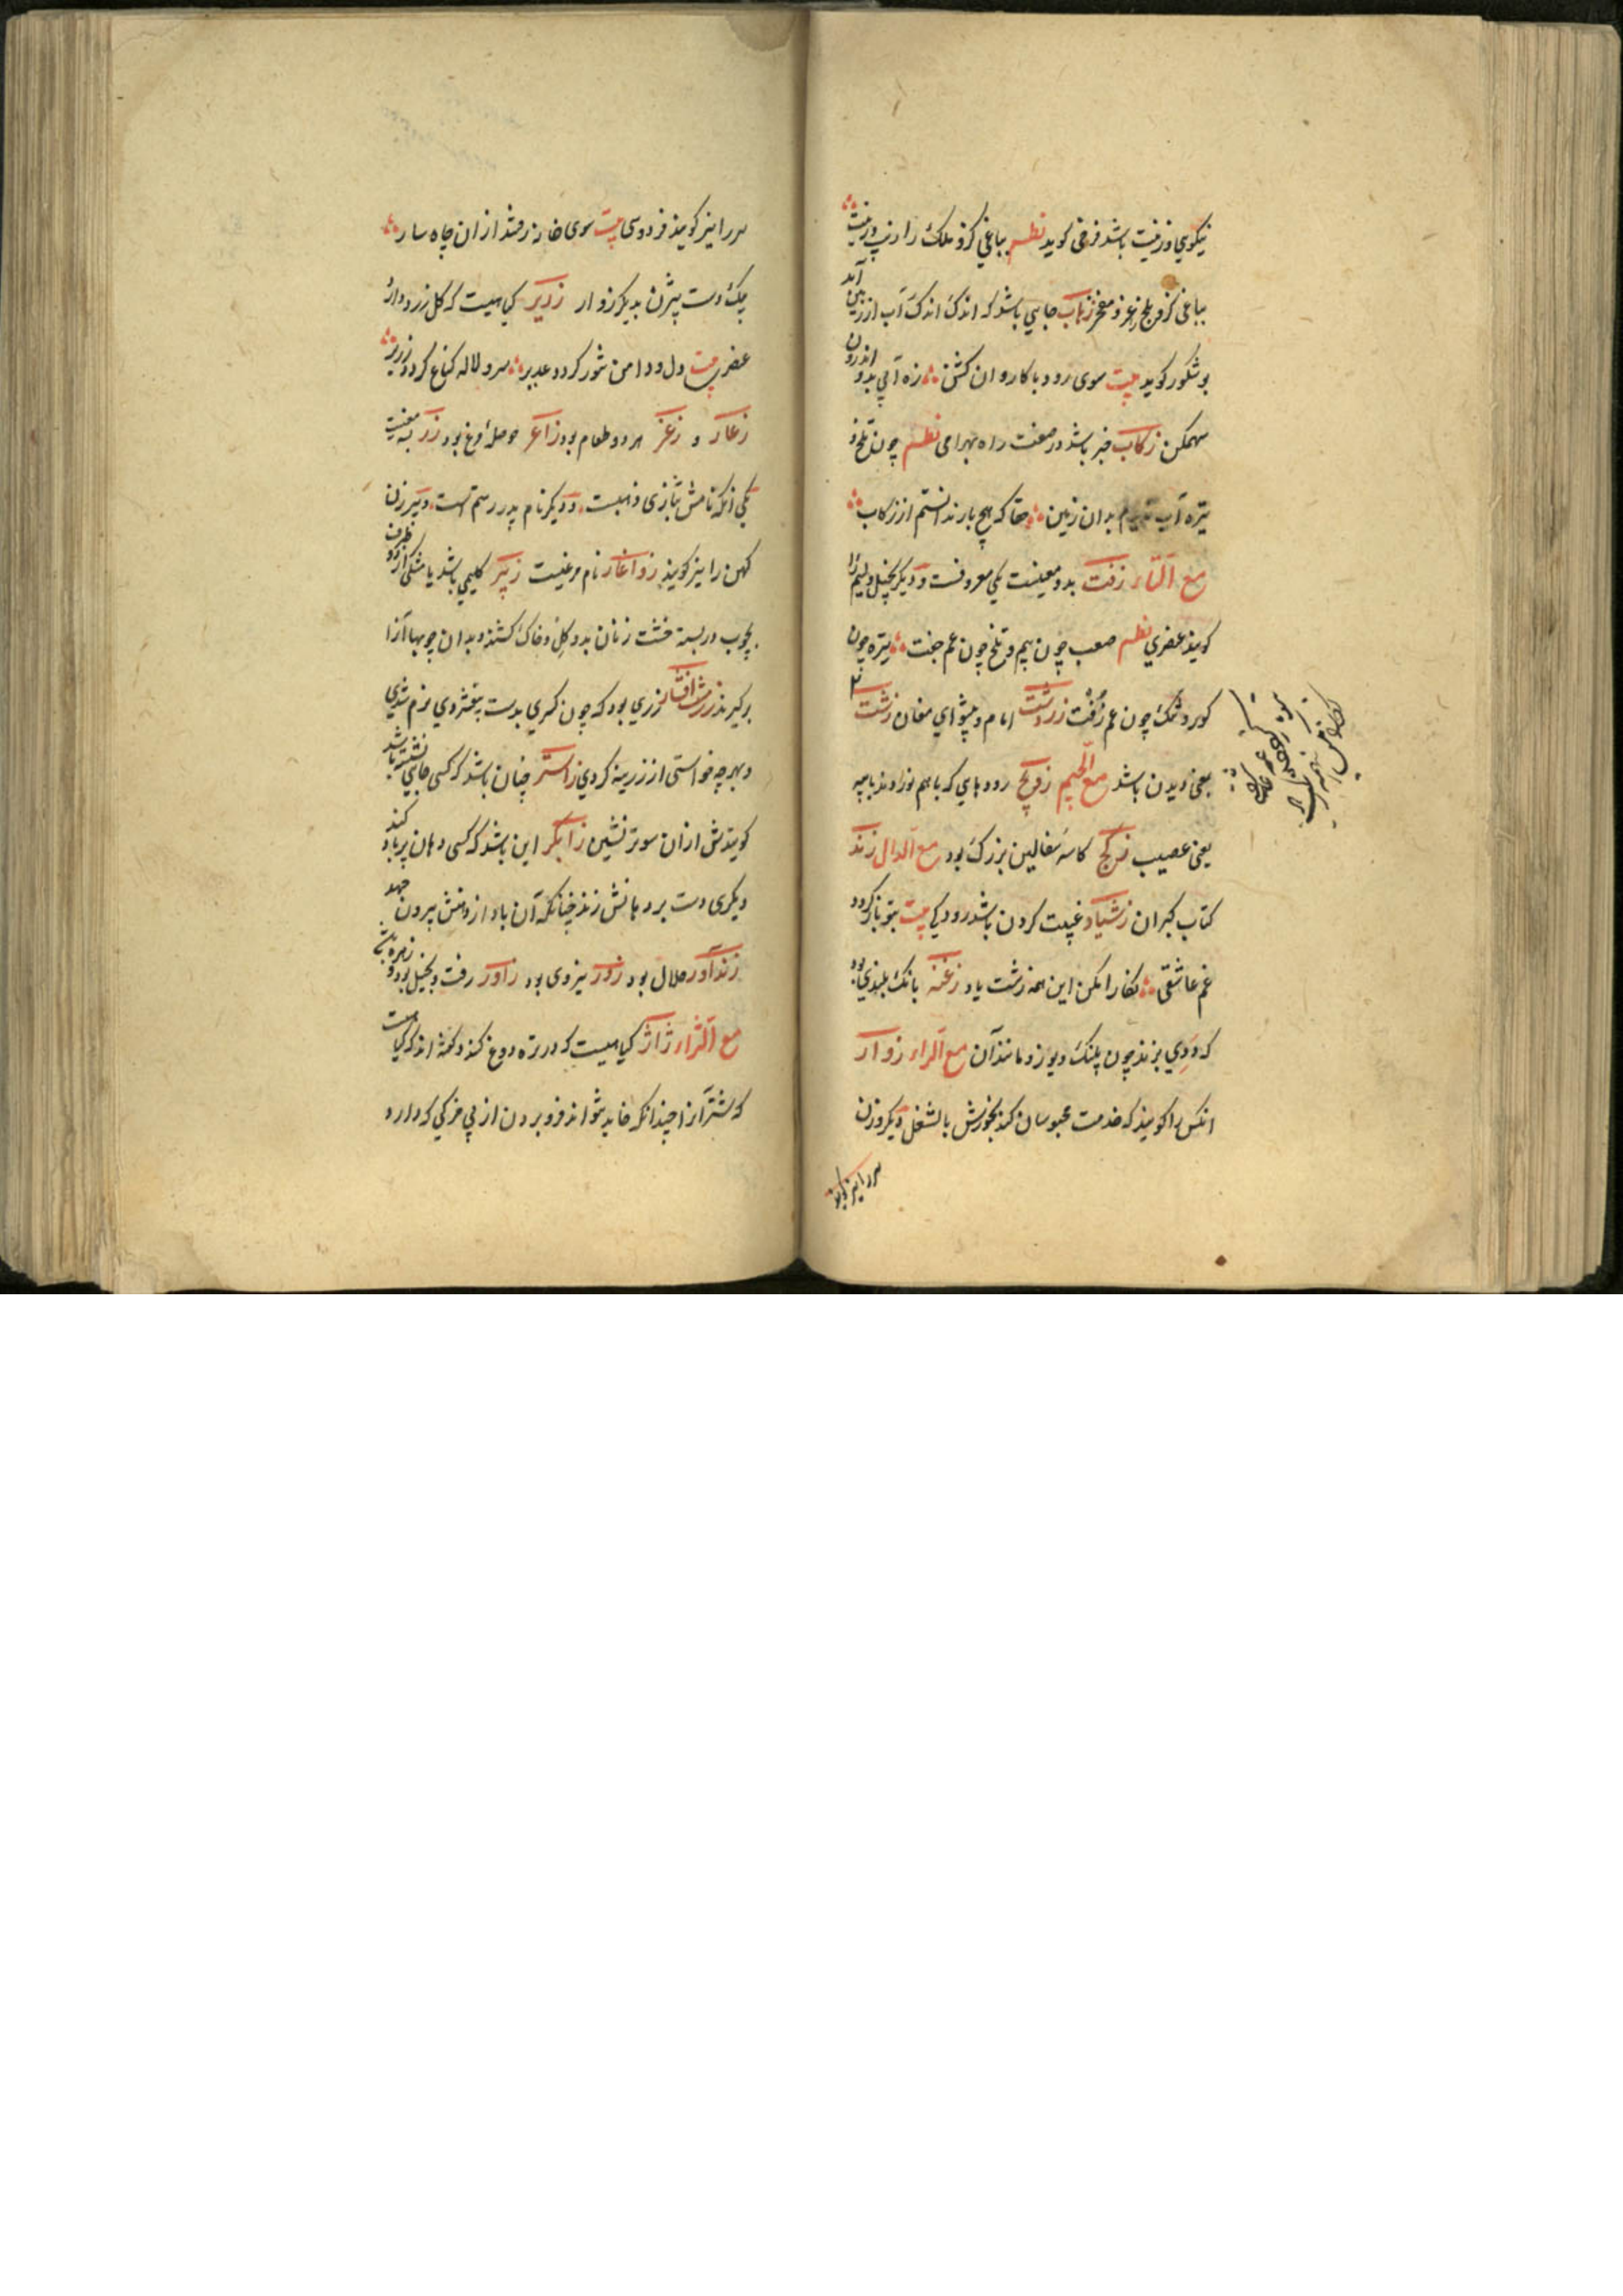 نیکویی و زینت باشد فرخی کوید نظم بباغی کزو ملک را زیب و زینت
بباغی کزو بلخ را عز و مفخر زهاب جایی باشد که اندک اندک آب از زمین آید
بوشکور کوید بیت سوی رود با کاروان کشن زه آبی بدو اندرون
سهمکن زکاب حبر باشد در صفت راه بهرامی نظم چون تلخ و
تیره آب بدان زمین حقا که هیچ باز ندانستم از زکاب
مع التاء زفت بدو معنیست یکی معروفست و دیکر بخیل و لیم را
کویند عنصری نظم صعب چون بیم و تلخ چون غم جفت تیره چون
کور و تنک چون غم زفت زردشت امام و پیشوای مغان زشت
یعنی دیدن باشد مع الجیم زویج رودهای که باهم نوردند بپیه
یعنی عصیب کاسه سفالین بزرک بود مع الدال زند
کتاب کبران زشیاد غیبت کردن باشد رودکی بیت بتو بازکردد
غم عاشقی نکارا مکن این همه زشت یاد زغنه بانک بلندی بود
که ددی بزند چون پلنک و یوز و مانند آن مع الراء زوار
انکس را کویند که خدمت محبوسان کند بخورش یا لشغل و دیکر وزن
سر را نیز کویند
سر را نیز کویند فردوسی بیت سوی خانه رفتند از ان چاه سار
یک دست بیژن بدیکر زوار زریر کیاهیست که کل زرد دارد
عنصری بیت دل و دامن تنور کرد و غدیر سرو لاله کناغ کرد و زریر
زغار و زغر هر دو طعام بود زاغر حوصله مرغ بود زر به معنیست
یکی انکه نامش بتازی ذهبست و دیکر نام پدر رستم است و پیر زن
کهن را نیز کویند زواغار نام مرغیست زنبر کلیمی باشد یا مشکی از دو طرف
بچوب در بسته خشت زنان بدو کل و خاک کشند و بدان چوبها آنرا
برکیرند زرمشت افشار زری بود که چون کسری بدست بیفشردی نرم شدی
و بهرچه خواستی از زرینه کردی زاستر چنان باشد که کسی جایی نشسته باشد
کویندش ازان سوتر نشین زابکر این باشد که کسی دهان پر باد کند
دیکری دست بر دهانش زند چنانکه آن باد از دهنش بیرون جهد
زندآور حلال بود زور نیروی بود زاور زفت و بخیل بود و زهره
مع الزاء ژاژ کیاهیست که در تره دوغ کنند و کفته اند که کیاهیست
که شتر آنرا چندانکه خاید نتواند فرو بردن از بی مزکی که دارد